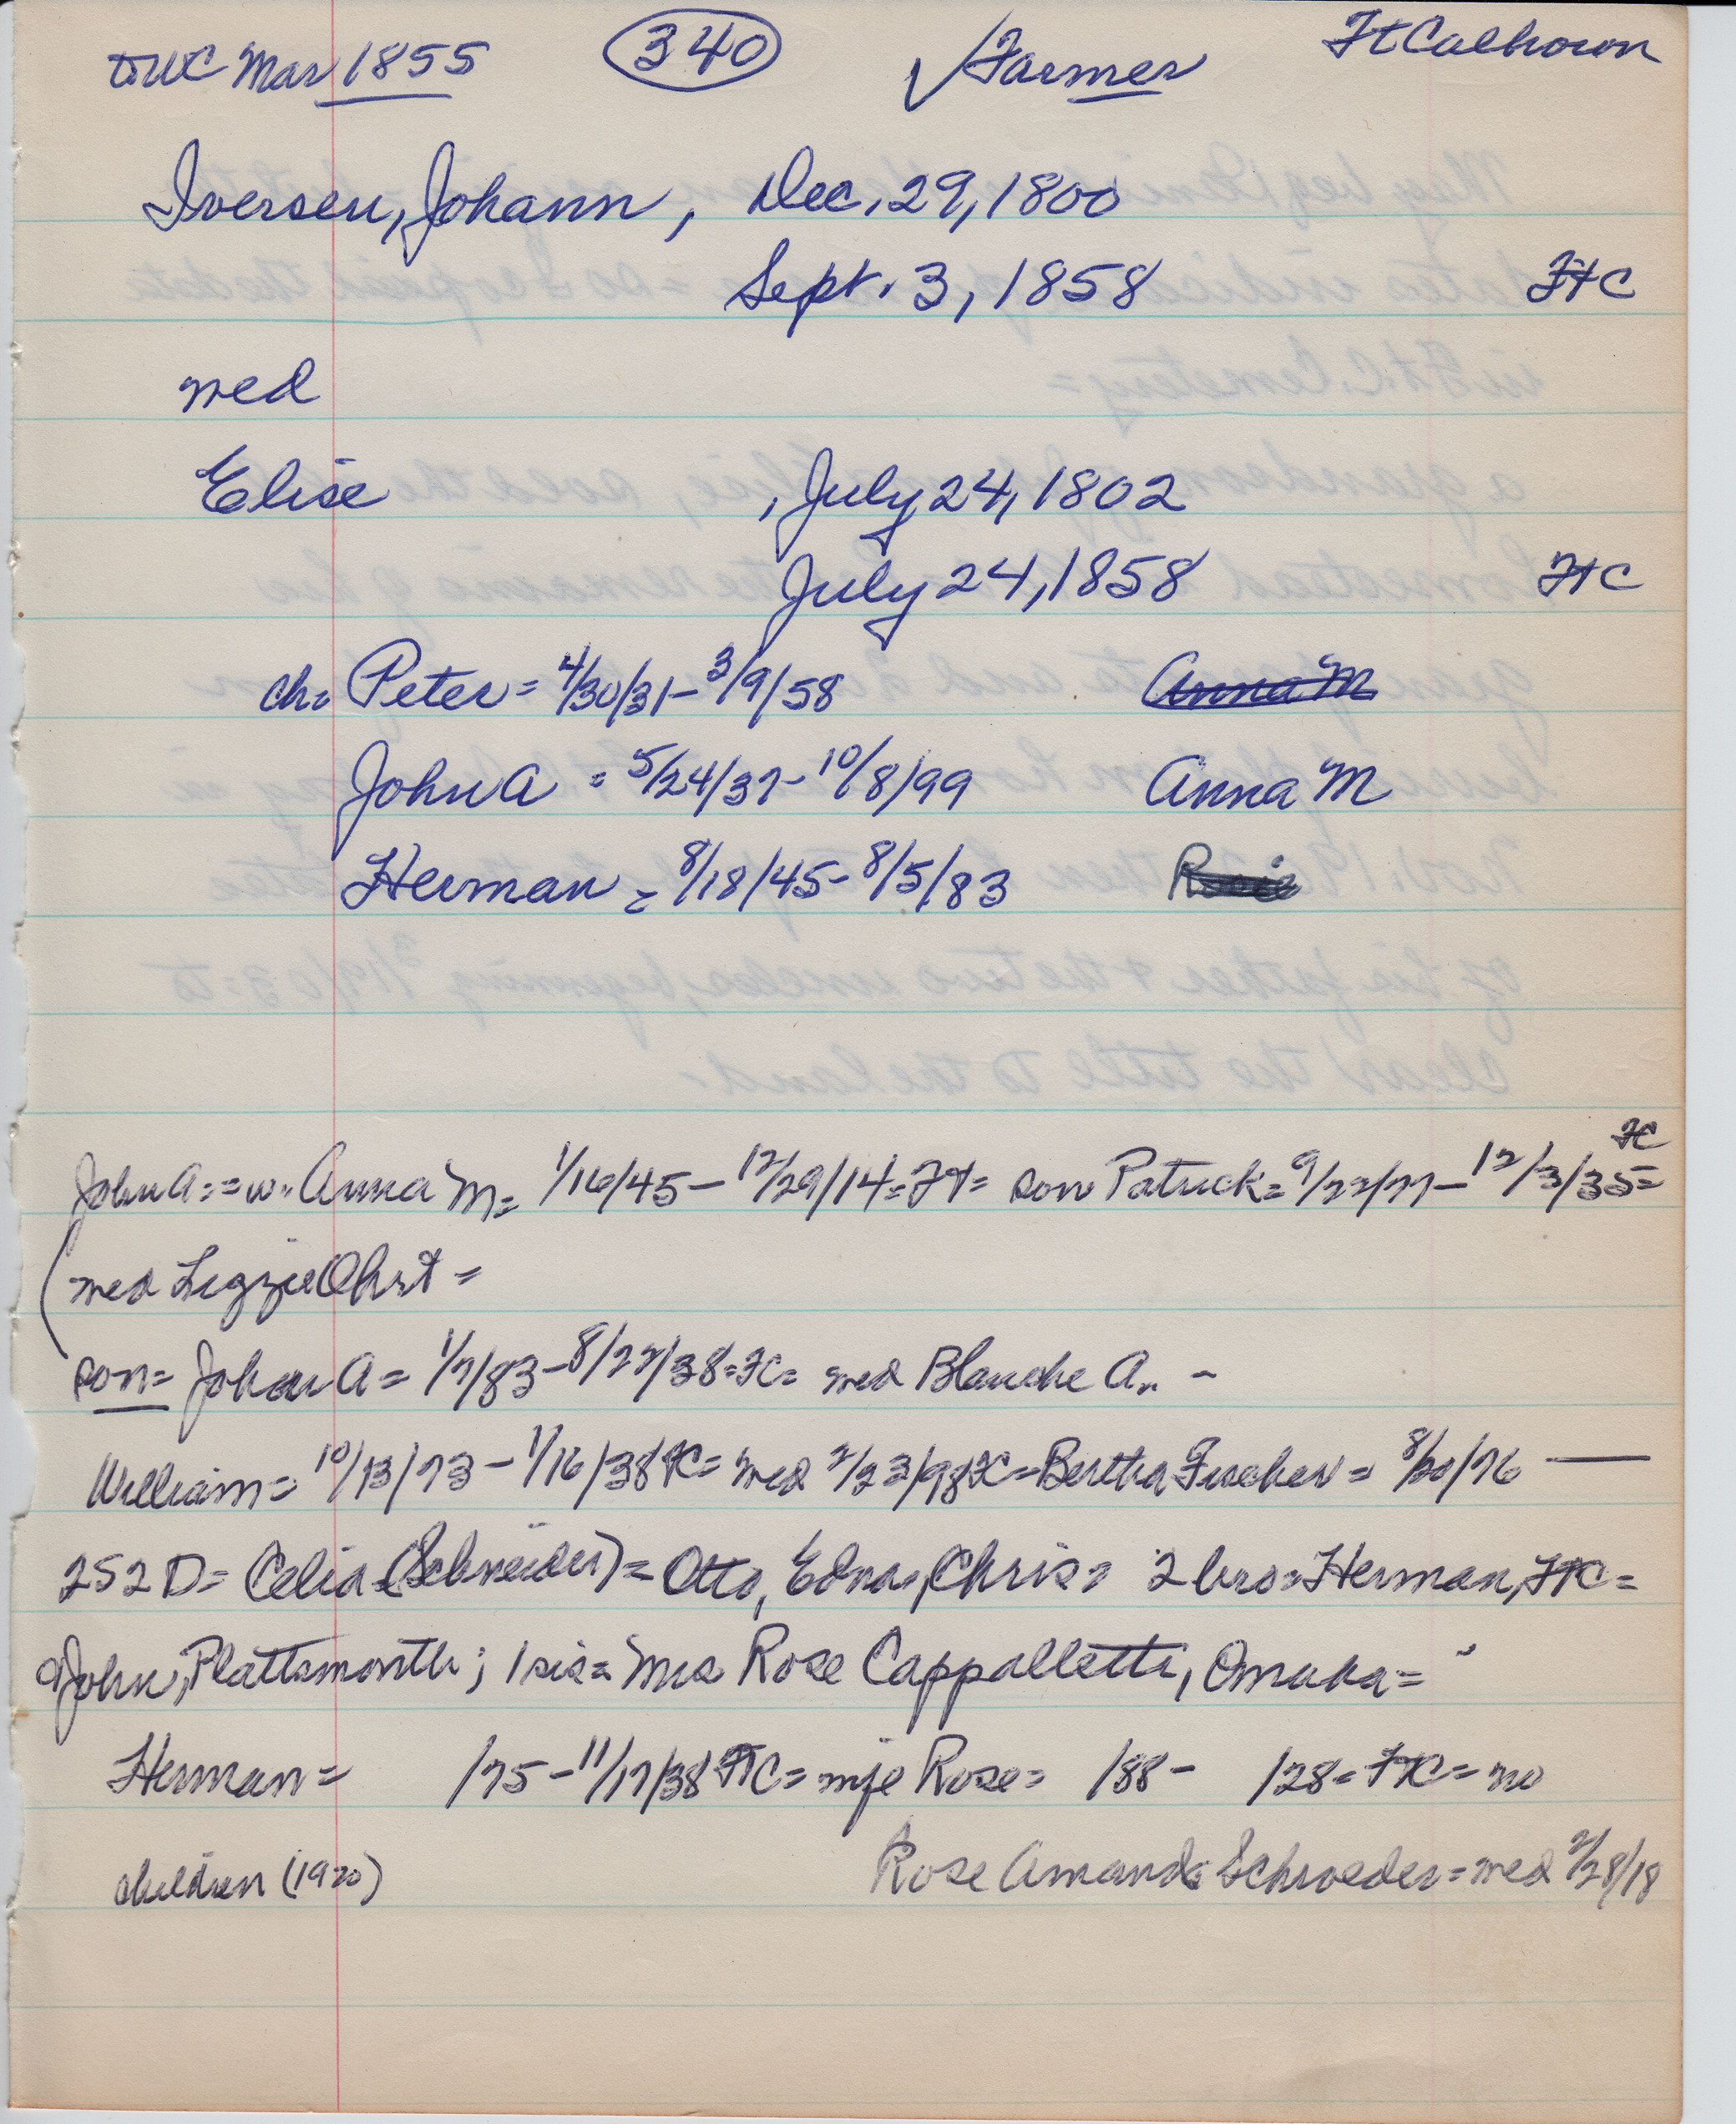 TWC Mar 1855 340 √Farmer Ft Calhoun
Iversen, Johann, Dec. 29, 1800
Sept. 3, 1858 FtC
med
Elise , July 24, 1802
July 24, 1858 FtC
ch= Peter = 4/30/31 - 3/9/58 Anna M
John A = 5/24/37 - 10/8/99 Anna M
Herman = 8/18/45 - 8/5/83 Rosie
FC
John A = = w. Anna M = 1/16/45 - 12/29/14 = Ft = son Patrick = 9/22/77 - 12/3/35 =
(med Lizzie Ohrt =
son = John A = 1/7/83 - 8/22/38 = FC = med Blanche A. -
William = 10/13/73 - 1/16/38 FC = med 2/23/98 FC = Bertha Fischer = 8/20/76 —
252 D = Celia (Schneider) = Otto, Edna, Chris = 2 bro = Herman, FtC =
John, Plattsmouth; 1 sis = Mrs Rose Cappalletti, Omaha =
Herman = /75 - 11/17/38 FTC = mje Rose = /88 - /28 = FtC = no
children (1920) Rose Amanda Schroeder = med 2/28/18